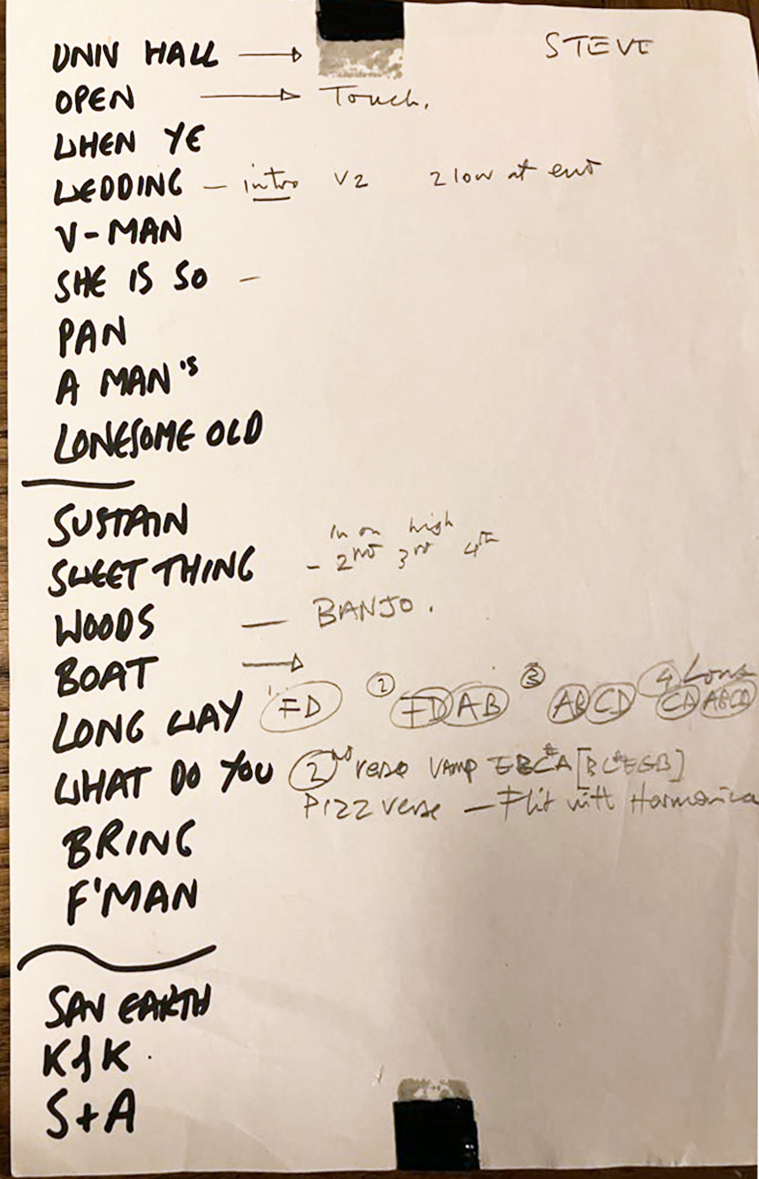 UNIV HALL → STEVE
OPEN → Touch.
WHEN YE
WEDDING – intro V2 2 low at end
V-MAN
SHE IS SO –
PAN
A MAN'S
LONESOME OLD
SUSTAIN
In on high
SWEET THING – 2nd 3rd 4th
WOODS — BANJO.
BOAT →
LONG WAY 1 FD 2 FD AB 3 AB CD 4 Long CD ABCD
WHAT DO YOU 2nd verse VAMP EBC#A [BC#EGB]
Pizz verse – Flit with Harmonica
BRING
F'MAN
SAV EARTH
K&K.
S+A